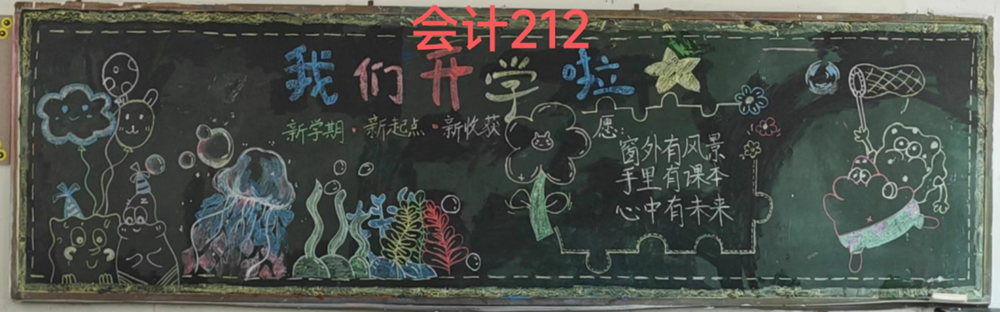 会计212
我们开学啦
新学期·新起点·新收获
愿:
窗外有风景
手里有课本
心中有未来